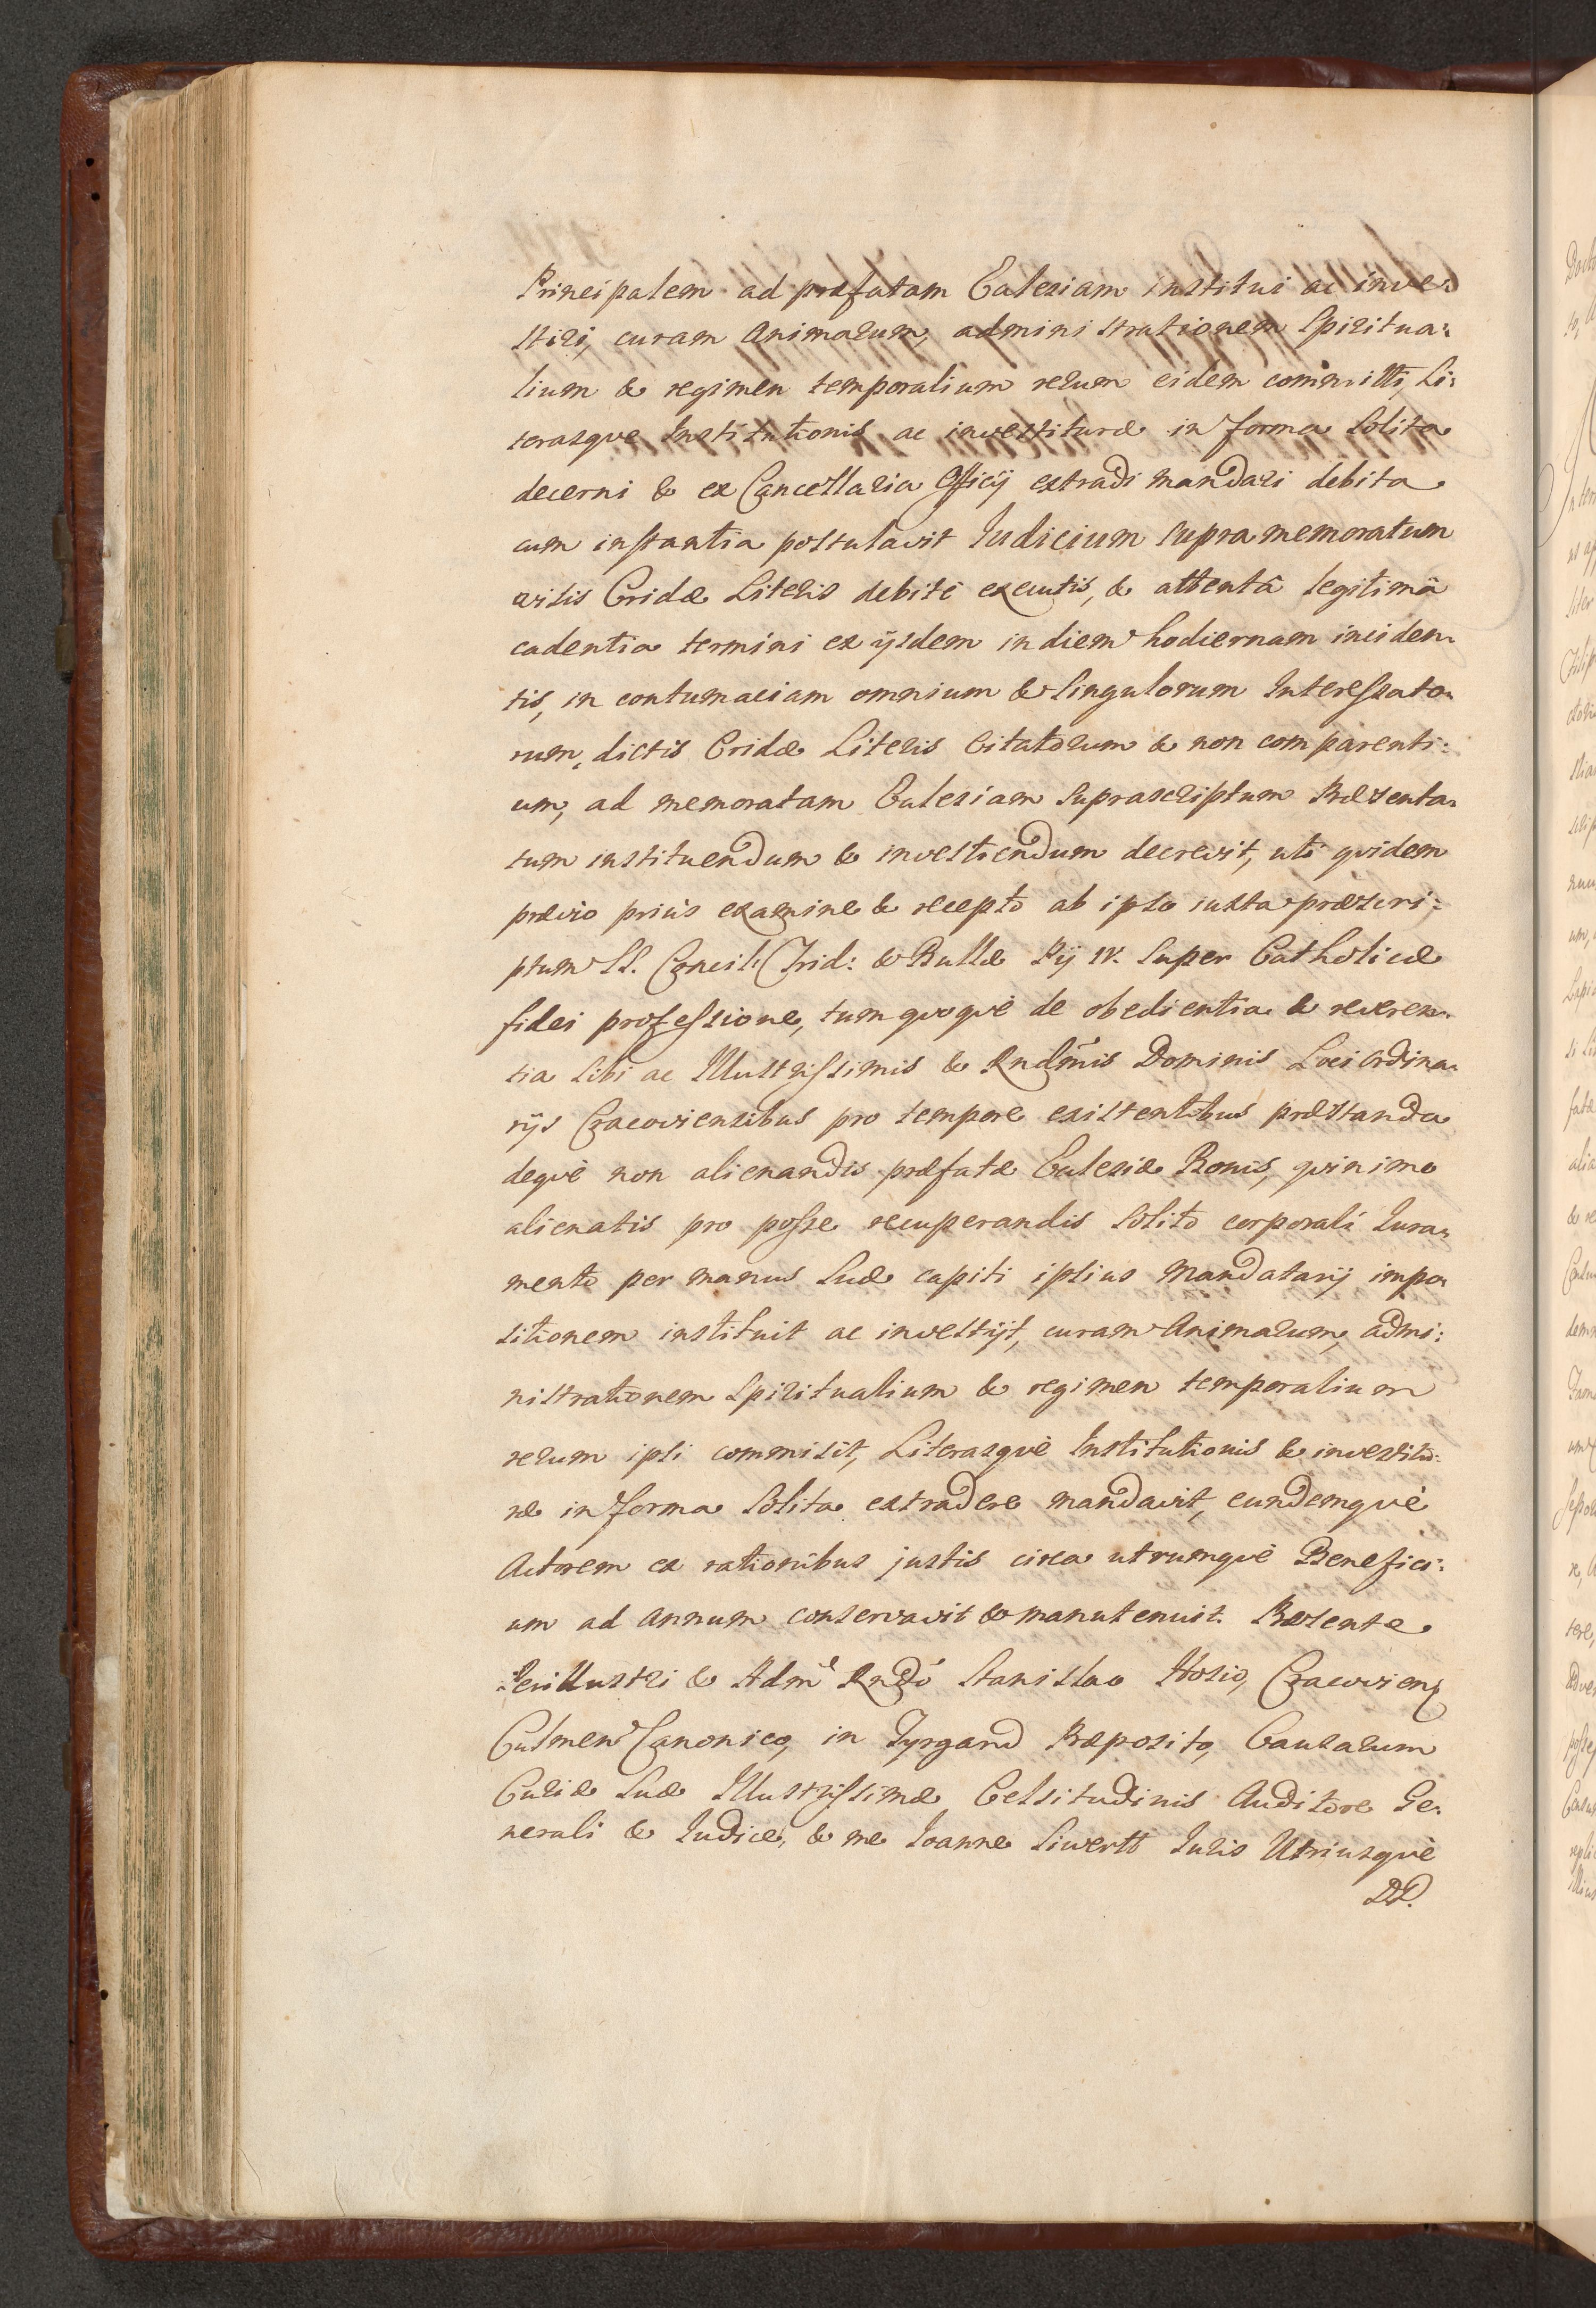 Principalem ad præfatam Ecclesiam institui ac inve-
stiri, curam Animarum, administrationem Spiritua:
lium & regimen temporalium rerum eidem committi, Li:
terasque Institutionis ac investituræ in forma solita
decerni & ex Cancellaria Officij extradi mandari debita
cum instantia postulavit Iudicium supra memoratum
visis Cridæ Literis debite executis, & attentâ legitimâ
cadentia termini ex ijsdem in diem hodiernam inciden-
tis, in contumaciam omnium & singulorum Interessato-
rum, dictis Cridæ Literis Citatorum & non comparenti:
um, ad memoratam Ecclesiam suprascriptum Præsenta-
tum instituendum & investiendum decrevit, uti quidem
prævio priùs examine & recepto ab ipso iuxta præscri:
ptum SS. Concil: Trid: & Bullæ Pij IV. super Catholicæ
fidei professione, tum quoquè de obedientia & reveren-
tia sibi ac Illustrissimis & Rndmis Dominis Loci Ordina-
rijs Cracoviensibus pro tempore existentibus præstanda
dequè non alienandis præfatæ Ecclesiæ Bonis, quinimo
alienatis pro posse recuperandis solito corporali Iura-
mento per manus suæ capiti ipsius Mandatarij impo-
sitionem instituit ac investijt, curam Animarum, admi:
nistrationem Spiritualium & regimen temporalium
rerum ipsi commisit, Literasquè Institutionis & investitu:
ræ in forma solita extradere mandavit, eundemquè
Actorem ex rationibus justis circa utrumquè Benefici:
um ad annum conservavit & manutenuit. Præsente
Perillustri & Adm Rndo Stanislao Hosio, Cracovien
Culmen Canonico, in Tyrgand Præposito, Causarum
Curiæ Suæ Illustrissimæ Celsitudinis Auditore Ge-
nerali & Iudice, & me Ioanne Siwertt Iuris Utriusquè
DD.